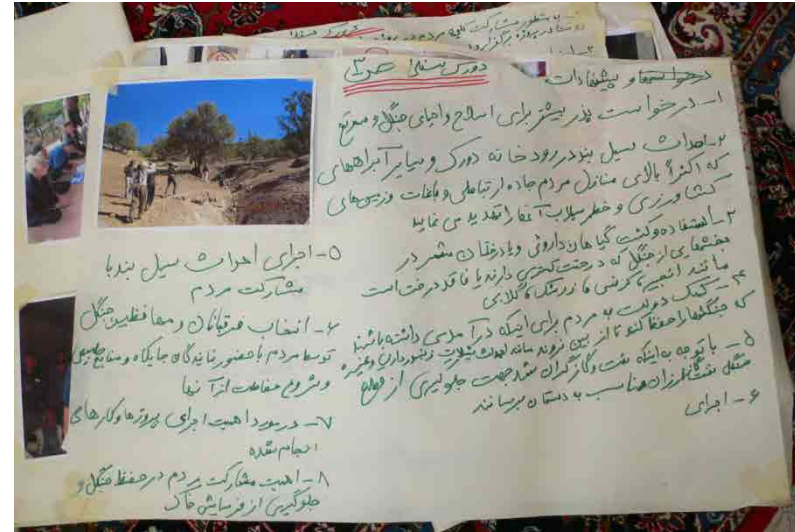 ۱- بمنظور مشارکت کلیه مردم در
روستا در پروژه برگزار گردد
دورک سفلی
درخواستها و پیشنهادات
۱- درخواست بذر بیشتر برای اصلاح و احیای جنگل و مرتع
۲- احداث سیل بند در رودخانه دورک و سایر آبراههای
که اکثراً بالای منازل مردم جاده ارتباطی و باغات و زمین‌های
کشاورزی و خطر سیلاب آنها را تهدید می نماید
۳- استفاده و کشت گیاهان داروئی و یا درختان مثمر در
از جنگل که درخت کمتری دارند یا فاقد درخت است
مانند انجیر، زرشک، گلابی
۴- کمک دولت به مردم برای اینکه درآمدی داشته باشند
که جنگلها را حفظ کنند تا از بین نروند مانند زنبورداری و غیره
۵- با توجه به اینکه نفت و گاز گران شد جهت جلوگیری از قطع
جنگل نفت مناسب به دستمان برسانند
۶- اجرای
۵- اجرای احداث سیل بند با
مشارکت مردم
۶- انتخاب قرقبانان و محافظین جنگل
توسط مردم با حضور نمایندگان جایگاه و منابع طبیعی
و شروع حفاظت از آنها
۷- در مورد اهمیت اجرای پروژها و کارهای
انجام شده
۸- اهمیت مشارکت مردم در حفظ جنگل و
جلوگیری از فرسایش خاک